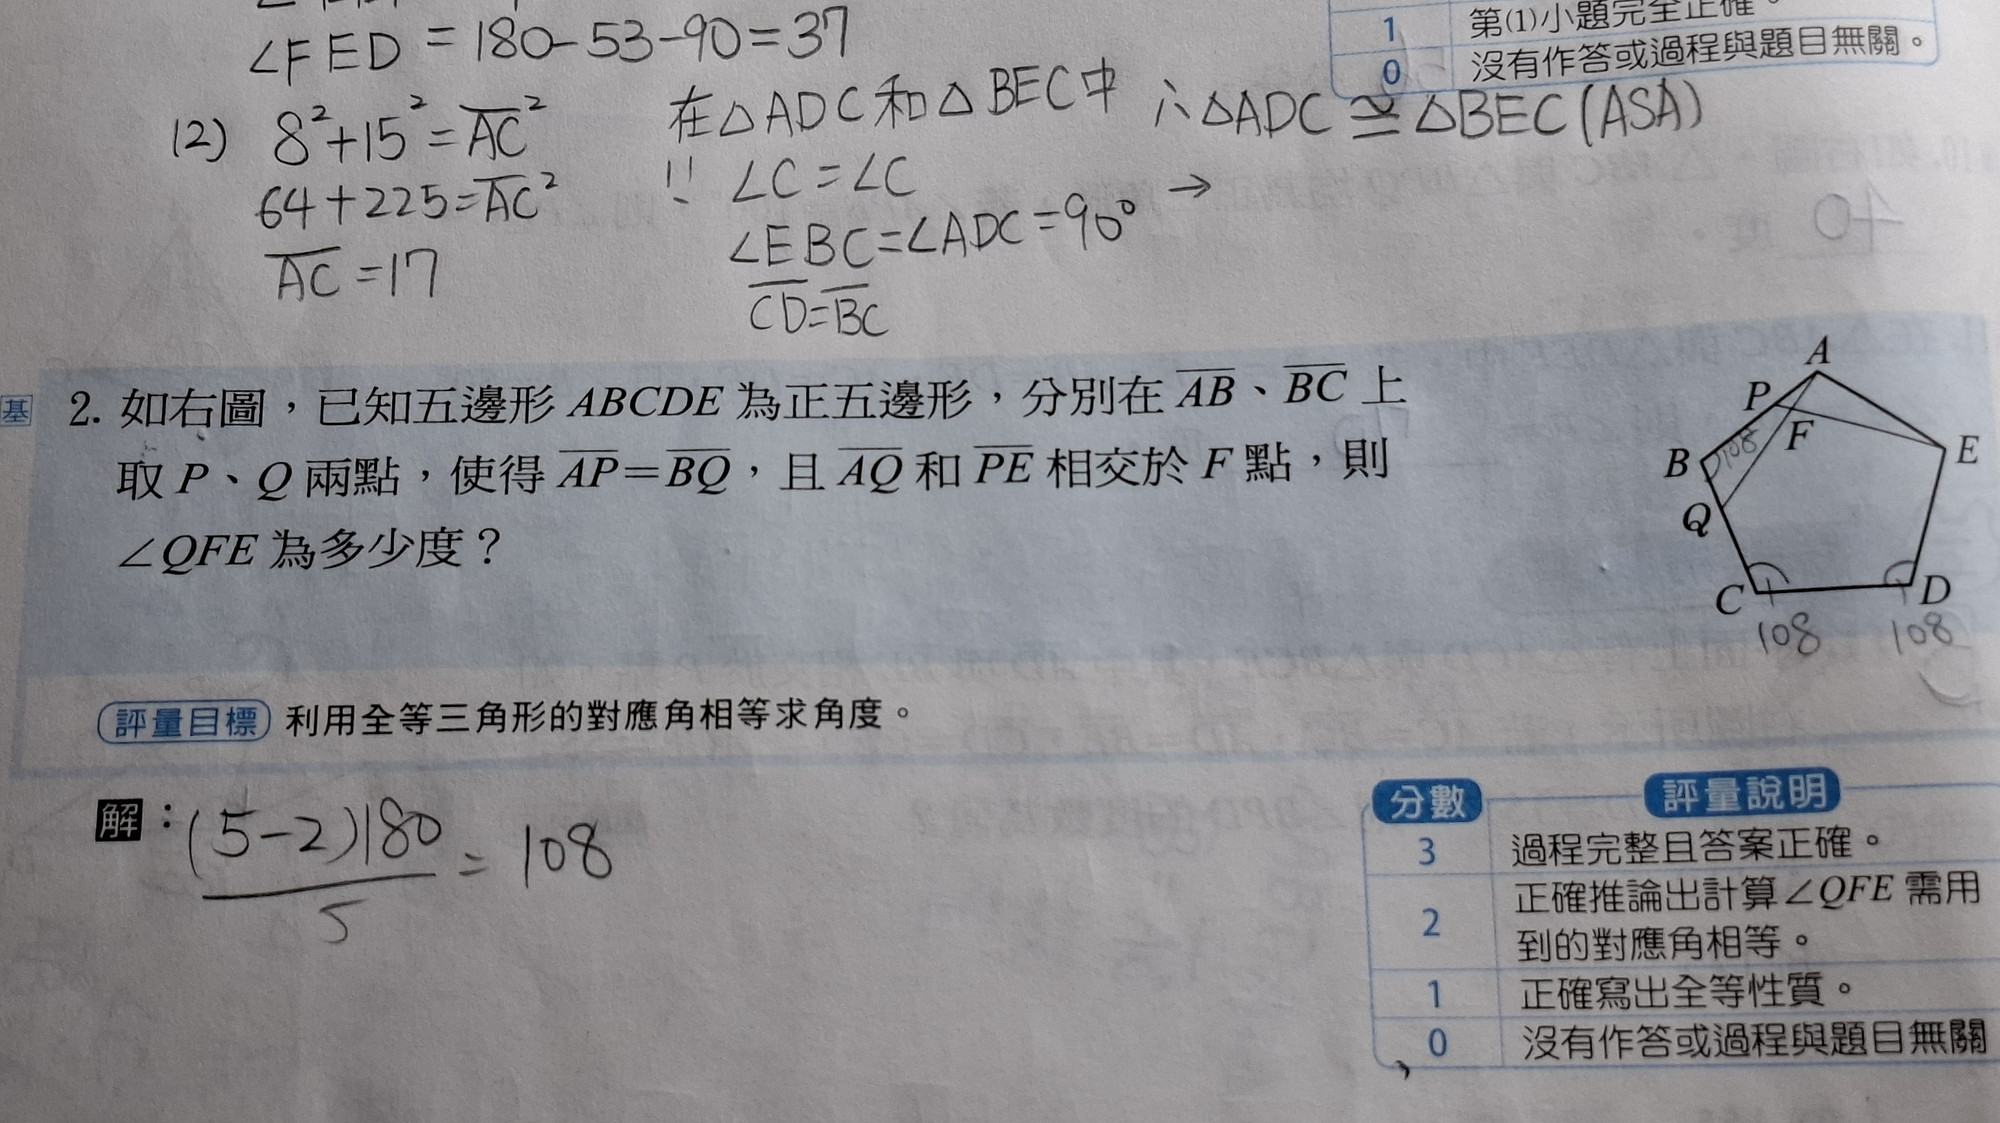 ∠FED = 180-53-90=37
1 第(1)小題完全正確。
0 沒有作答或過程與題目無關。
(2) 8²+15²=A̅C̅²
64+225=A̅C̅²
A̅C̅=17
在△ADC和△BEC中
∵ ∠C=∠C
∠EBC=∠ADC=90° →
C̅D̅=B̅C̅
∴△ADC≅△BEC(ASA)
基
2. 如右圖,已知五邊形 ABCDE 為正五邊形,分別在 A̅B̅、B̅C̅ 上
取 P、Q 兩點,使得 A̅P̅=B̅Q̅,且 A̅Q̅ 和 P̅E̅ 相交於 F 點,則
∠QFE 為多少度?
A
P
F
B
108
E
Q
C
D
108
108
評量目標 利用全等三角形的對應角相等求角度。
解:(5-2)180/5 = 108
分數 評量說明
3 過程完整且答案正確。
2 正確推論出計算∠QFE 需用
到的對應角相等。
1 正確寫出全等性質。
0 沒有作答或過程與題目無關